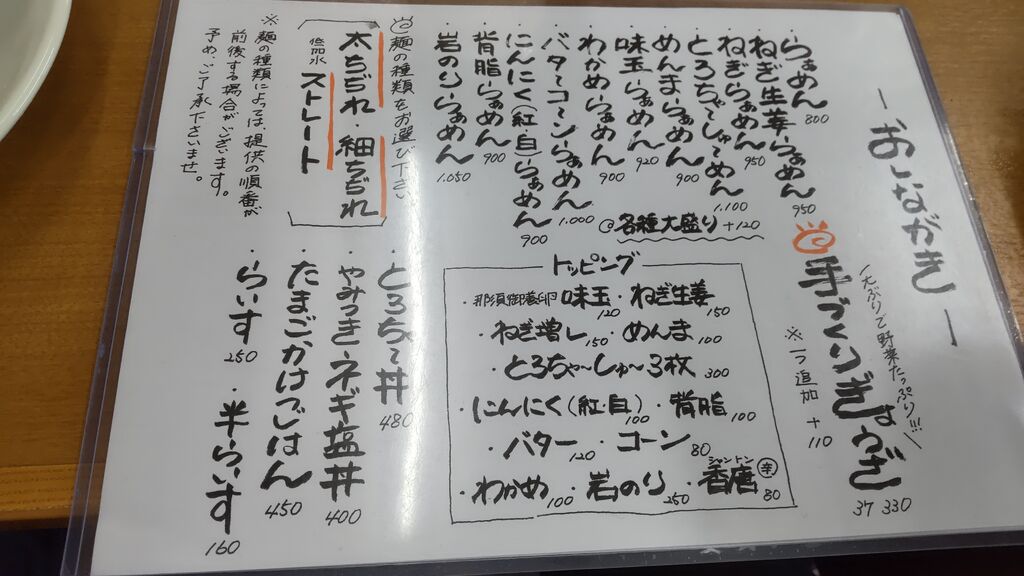 ーおしながきー
・らぁめん 800
・ねぎ生姜らぁめん 950
・ねぎらぁめん 950
・とろちゃ～しゅ～めん 1.100
・めんまらぁめん 900
・味玉らぁめん 920
・わかめらぁめん 900
・バターコーンらぁめん 1.000
・にんにく(紅・白)らぁめん 900
・背脂らぁめん 900
・岩のりらぁめん 1.050
@各種大盛り +120
大ぶりで野菜たっぷり!!!
手づくりぎょうざ
3ケ 330
※一つ追加 +110
麺の種類をお選び下さい
太ちぢれ・細ちぢれ
低加水 ストレート
※麺の種類によっては、提供の順番が
前後する場合がございます。
予め、ご了承下さいませ。
トッピング
・那須御養卵 味玉 120 ・ねぎ生姜 150
・ねぎ増し 150 ・めんま 100
・とろちゃ～しゅ～3枚 300
・にんにく(紅・白) 100 ・背脂 100
・バター 120 ・コーン 80
・わかめ 100 ・岩のり 250 ・香唐 シャントン 辛 80
・とろちゃ～丼 480
・やみつきネギ塩丼 400
・たまごかけごはん 450
・らいす 250 ・半らいす 160